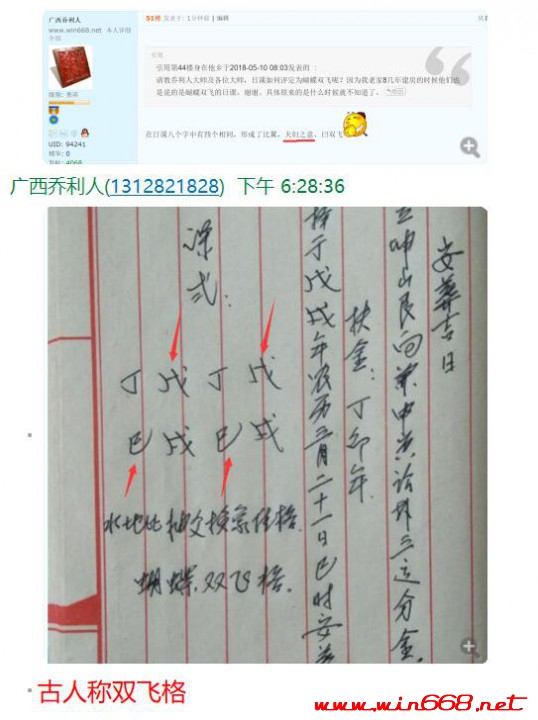 广西乔利人
www.win668.net 本人详细
介绍
级别: 贵宾
UID: 94241
精华: 0
发帖: 4068
51楼 发表于: 1分钟前 | 编辑
引用
引用第44楼身在他乡于2018-05-10 08:03发表的 :
请教乔利人大师及各位大师，日课如何评定为蝴蝶双飞呢？因为我老家8几年建房的时候他们也
是说的是蝴蝶双飞的日课。谢谢。具体原来的是什么时候就不知道了。
在日课八个字中有四个相同，形成了比翼，夫妇之意，曰双飞
广西乔利人(1312821828) 下午 6:28:36
安葬吉日
立坤山艮向兼申寅
分金
扶金：丁卯年
择于戊戌年农历三月二十一日巳时安葬
课式：
戊 丁 戊 丁
戌 巳 戌 巳
蝴蝶双飞格
古人称双飞格
www.win668.net